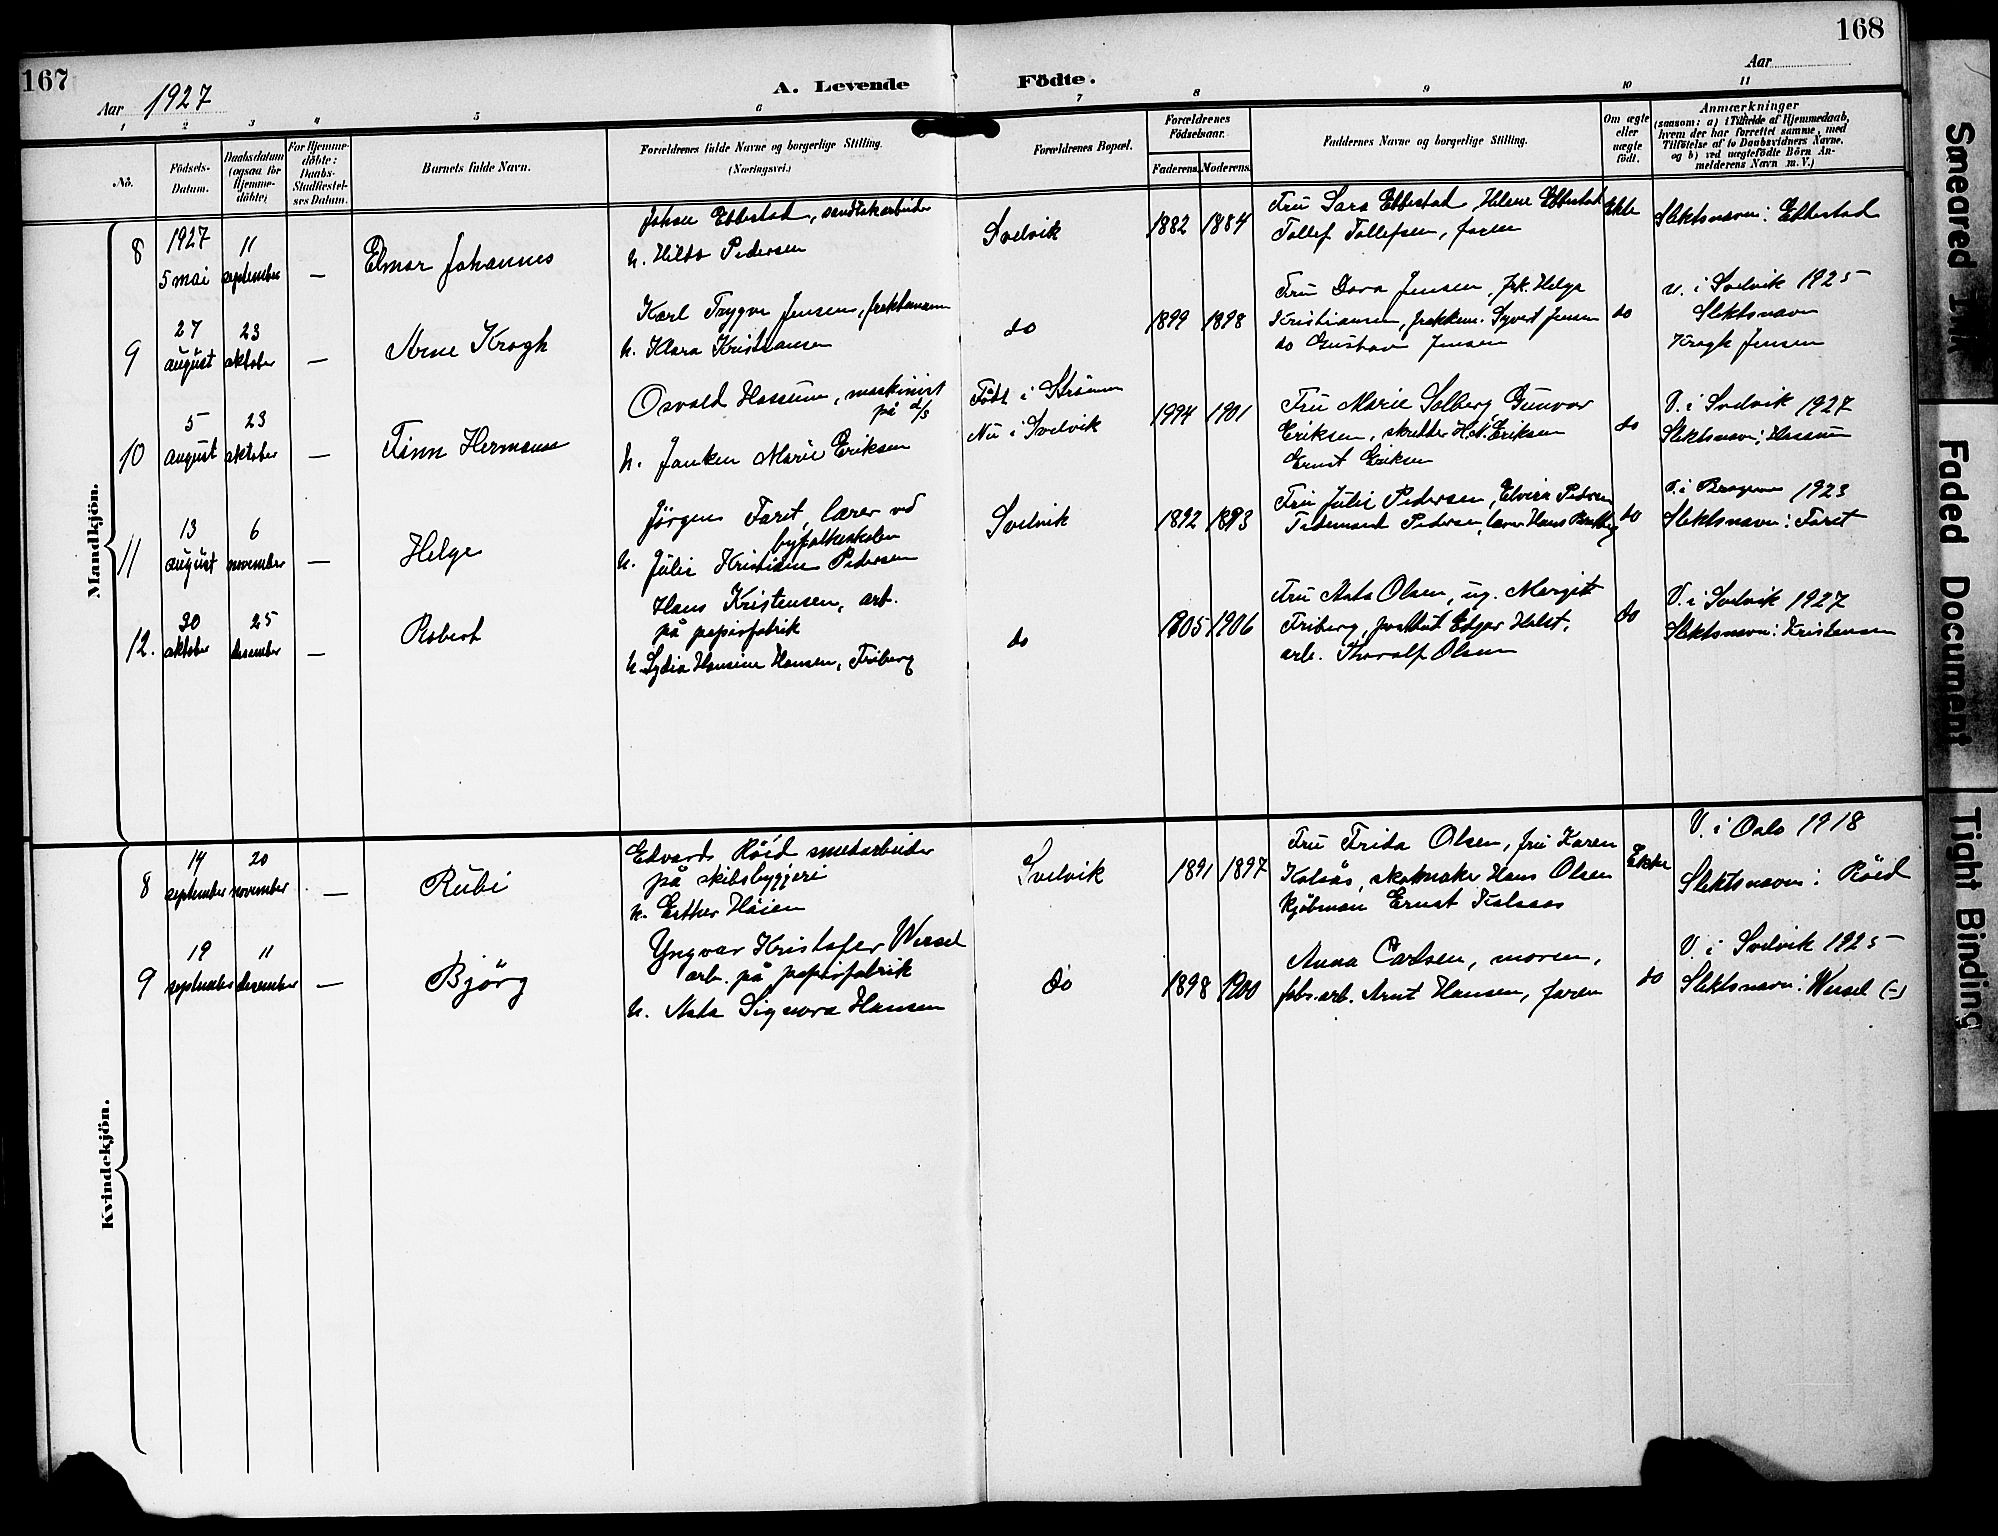 167
168
Aar 1927
A. Levende Födte.
Aar
1 2 3 4 5 6 7 8 9 10 11
No.
Födsels-Datum.
Daabsdatum (ogsaa for Hjemmedöbte)
For Hjemmedöbte: Daabs-Stadfæstelses Datum.
Barnets fulde Navn.
Forældrenes fulde Navne og borgerlige Stilling.
(Næringsvei.)
Forældrenes Bopæl.
Forældrenes Födselsaar.
Faderens. Moderens.
Faddernes Navne og borgerlige Stilling.
Om ægte eller uægte födt.
Anmærkninger
(saasom: a) i Tilfælde af Hjemmedaab,
hvem der har forrettet samme, med
Tilföielse af to Daabsvidners Navne,
og b) ved uægtefödte Börn An-
melderens Navn m. V.)
Mandkjön.
8 1927 5 mai 11 september — Elmar Johannes
Johan Ebbestad,
h. Hilda Pedersen
Svelvik 1882 1884
Fru Sara Ebbestad, Helene Ebbestad
Tollef Tollefsen, faren
Ekte
Slektsnavn: Ebbestad
9 27 august 23 oktober — Arne Krogh
Karl Trygve Jensen, fraktemann
h. Klara Kristiansen
do 1899 1898
Fru Dora Jensen, frk. Helga
Kristiansen, fraktem. Syvert Jensen
do Gustav Jensen
do
v. i Svelvik 1925
Slektsnavn
Krogh Jensen
10 5 august 23 oktober — Finn Hermann
Osvald Hassum, maskinist
på d/s
h. Janken Marie Eriksen
Födt i Strömm
Nu i Svelvik
1994 1901
Fru Marie Solberg, Gunvor
Eriksen, skredder H.N. Eriksen
Ernst Eriksen
do
V. i Svelvik 1927
Slektsnavn: Hassum
11 13 august 6 november — Helge
Jörgen Faret, lærer ved
byfolkeskolen
h. Julie Kristine Pedersen
Svelvik 1892 1893
Fru Julie Pedersen, Elvira Pedersen
Tidemand Pedersen, lærer Hans
do
V. i Bragernes 1923
Slektsnavn: Faret
12. 30 oktober 25 desember — Robert
Hans Kristensen, arb.
på papirfabrik
h. Lydia Hansine Hansen, Friberg
do 1905 1906
Fru Asta Olsen, ug. Margit
Friberg, postbud Edgar Holst,
arb. Thoralf Olsen
do
V. i Svelvik 1927
Slektsnavn: Kristensen
Kvindekjön.
8 14 september 20 november — Rubi
Edvards Röed smedarbeider
på skibsbyggeri
h. Esther Höien
Svelvik 1891 1897
Fru Frida Olsen, fru Karen
Kolsås, skomaker Hans Olsen
kjöbman Ernst Kolsaas
Ekte
V. i Oslo 1918
Slektsnavn: Röed
9 19 september 11 desember — Björg
Yngvar Kristofer Wessel
arb. på papirfabrik
h. Asta Signora Hansen
do 1898 1900
Anna Carlsen, moren,
fabr.arb. Arnt Hansen, faren
do
V. i Svelvik 1925
Slektsnavn: Wessel (-)
Smeared Ink
Faded Document
Tight Binding